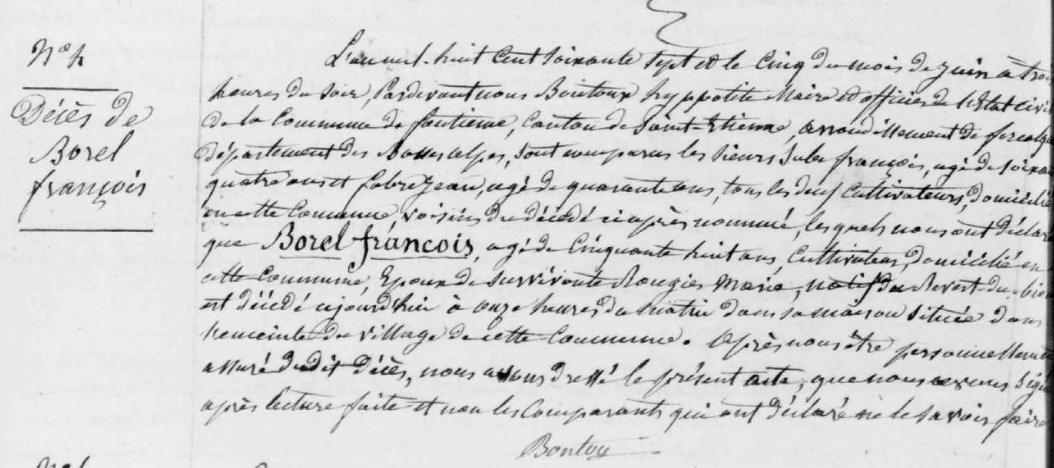 N° 4
Décès de
Borel
françois
L'an mil huit Cent soixante sept et le Cinq du mois de juin à troi
heures du soir, Pardevant nous Bontoux hyppolite Maire et officier de l'état civi
de la Commune de fontienne, Canton de Saint-Etienne, arrondissement de forcalqu
département des Basses alpes, sont comparus les sieurs françois, agé de soixan
quatre ans et fabre jean, agé de quarante ans, tous les deux Cultivateurs, domicilié
en cette Commune, voisins du décédé ci après nommé, les quels nous ont déclaré
que Borel françois, agé de Cinquante huit ans, Cultivateur, domicilié en
cette Commune, Epoux de survivante Rougier Marie, natif du Revest du bion
est décédé aujourd'hui à onze heures du matin dans sa maison située dans
l'enceinte du village de cette Commune. Après nous être personnellement
assuré dudit Décès, nous avons dressé le présent acte, que nous avons signé
après lecture faite et non les Comparants qui ont déclaré ne le savoir faire
Bontoux